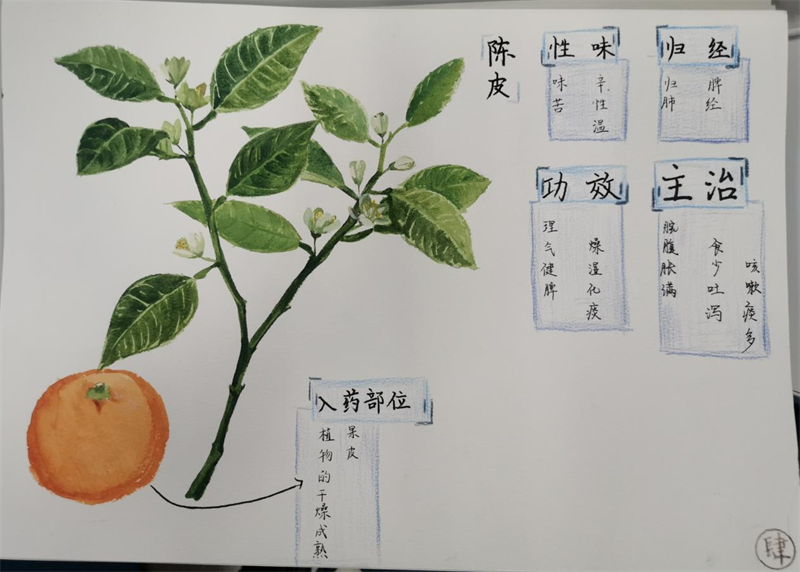 陈皮
性味
味苦
辛性温
归经
归肺
脾经
功效
理气健脾
燥湿化痰
主治
脘腹胀满
食少吐泻
咳嗽痰多
入药部位
植物的干燥成熟
果皮
肆